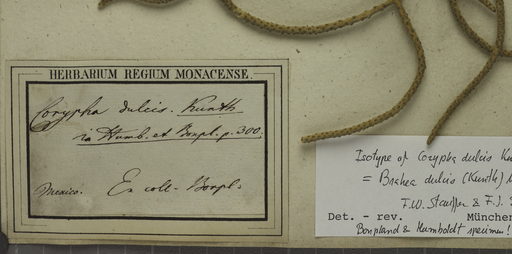 HERBARIUM REGIUM MONACENSE.
Corypha dulcis. Kunth
in Humb. et Bonpl. p. 300.
Mexico. Ex coll. Bonpl.
Isotype of Corypha dulcis
= Brahea dulcis (Kunth)
F.W. Stauffer & F.J.
Det. - rev. München
Bonpland & Humboldt specimen!